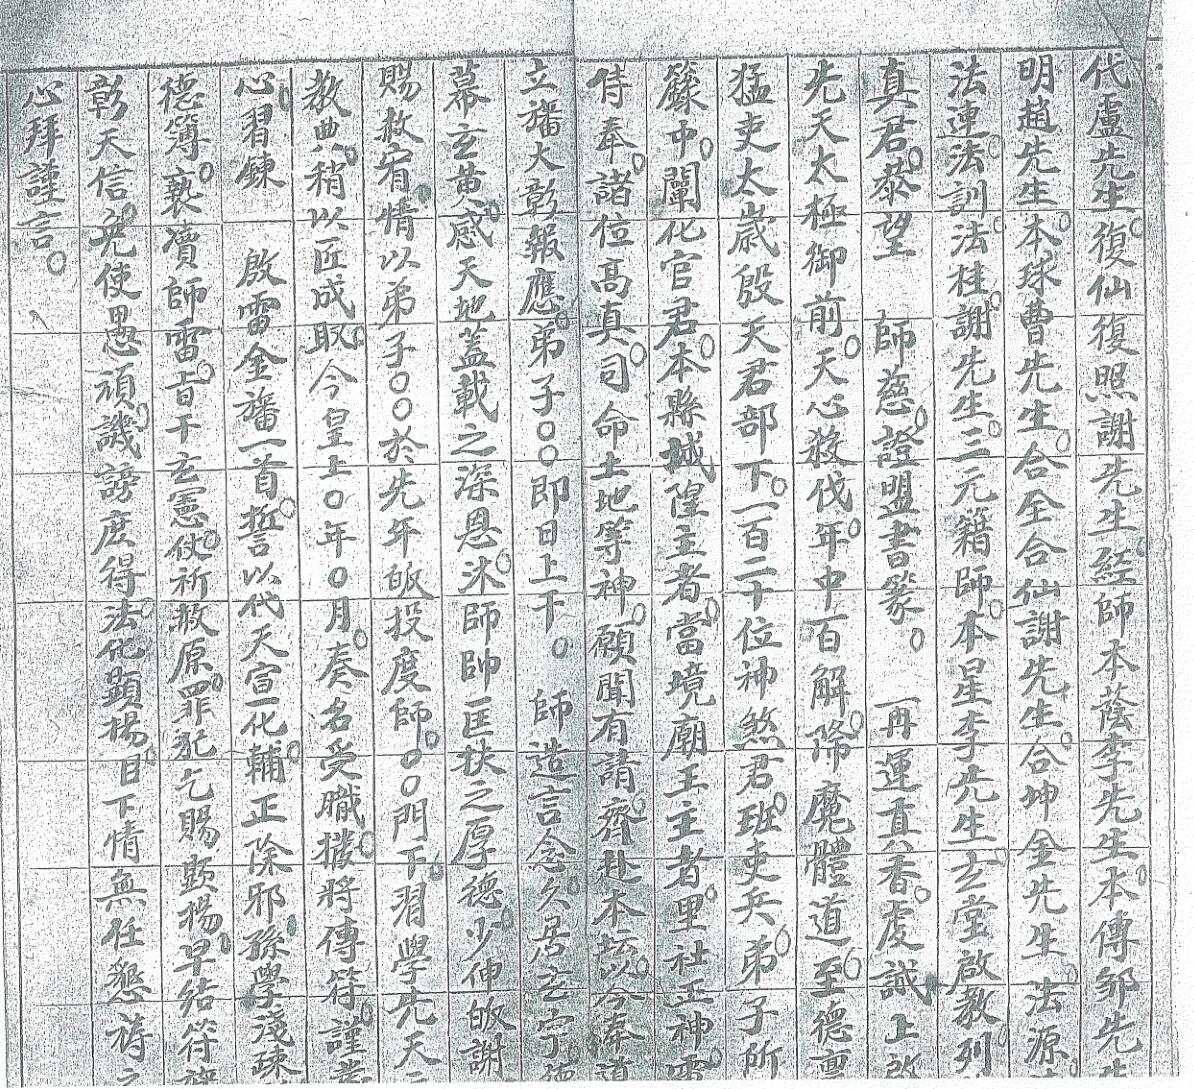 代盧先生。復仙復照謝先生。經師本蔭李先生。本傳鄒先生
明趙先生。本球曹先生。合全合仙謝先生。合坤金先生。法源
法連。法訓。法桂謝先生。三元籍師。本星李先生。玄堂啟教列
真君。恭望　師慈。證盟書篆。　再運真香。虔誠上啟
先天太極御前。天心殺伐。年中百解。降魔體道。至德
猛吏太歲殷天君部下。一百二十位神煞君。班吏兵。弟子所
籙中。闡化官君。本縣城隍主者。當境廟王主者。里社正神
侍奉。諸位高真。司命土地等神。願聞有請。齊赴本坛。以今奉道
立旛大彰報應。弟子〇〇即日上干。　師造言念。久居玄宇。
幕玄黄。感天地蓋載之深恩。沐師帥匡扶之厚德。少伸皈謝
賜赦宥。情以弟子〇〇於先年皈投度師。〇〇門下。習學先天
教典。稍以匠成。取今皇上〇年〇月。奏名受職。撥將傳符。謹
心習鍊　啟雷金旛一首。誓以代天宣化。輔正除邪。孫學淺疎
德簿。褻凟師雷。旨干玄憲。伏祈赦原。罪犯乞賜。顯揚。早結符
彰天信。免使愚頑。譏謗度得。法化顯揚。目下情無任懇禱之
心拜謹言。